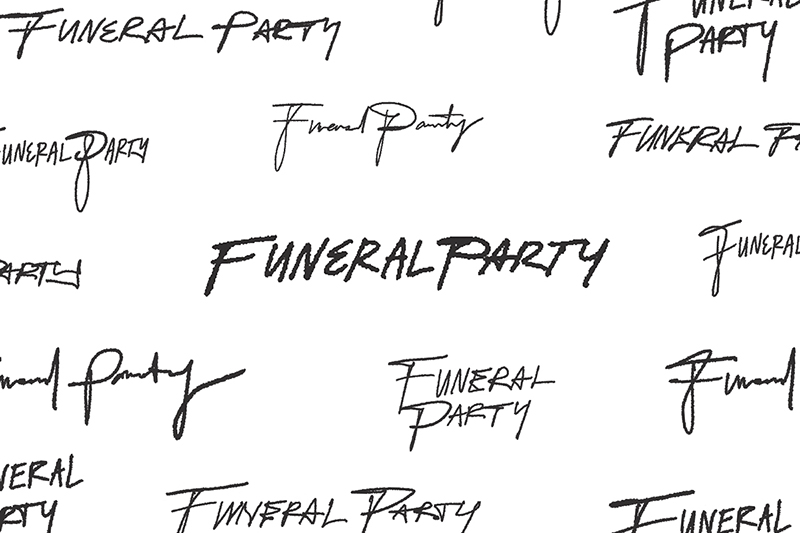 FUNERAL PARTY
UNERAL
PARTY
UNERAL PARTY
Funeral Party
FUNERAL PA
ARTY
FUNERAL PARTY
FUNERAL
Party
FUNERAL
PARTY
Funeral
NERAL
RTY
FUNERAL PARTY
FUNERAL